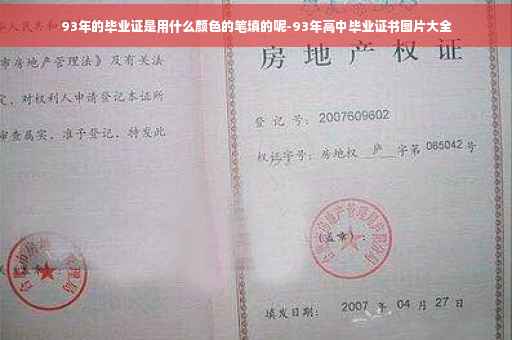 93年的毕业证是用什么颜色的笔填的呢-93年高中毕业证书图片大全
华人民共和
市房地产管理法》及有关法
定，对权利人申请登记本证所
审查属实，准予登记，特发此
房地产权证
登 记 号：2007609602
权证字号：房地权 庐 字第 065042 号
(盖章)：
填发日期： 2007 年 04 月 27 日